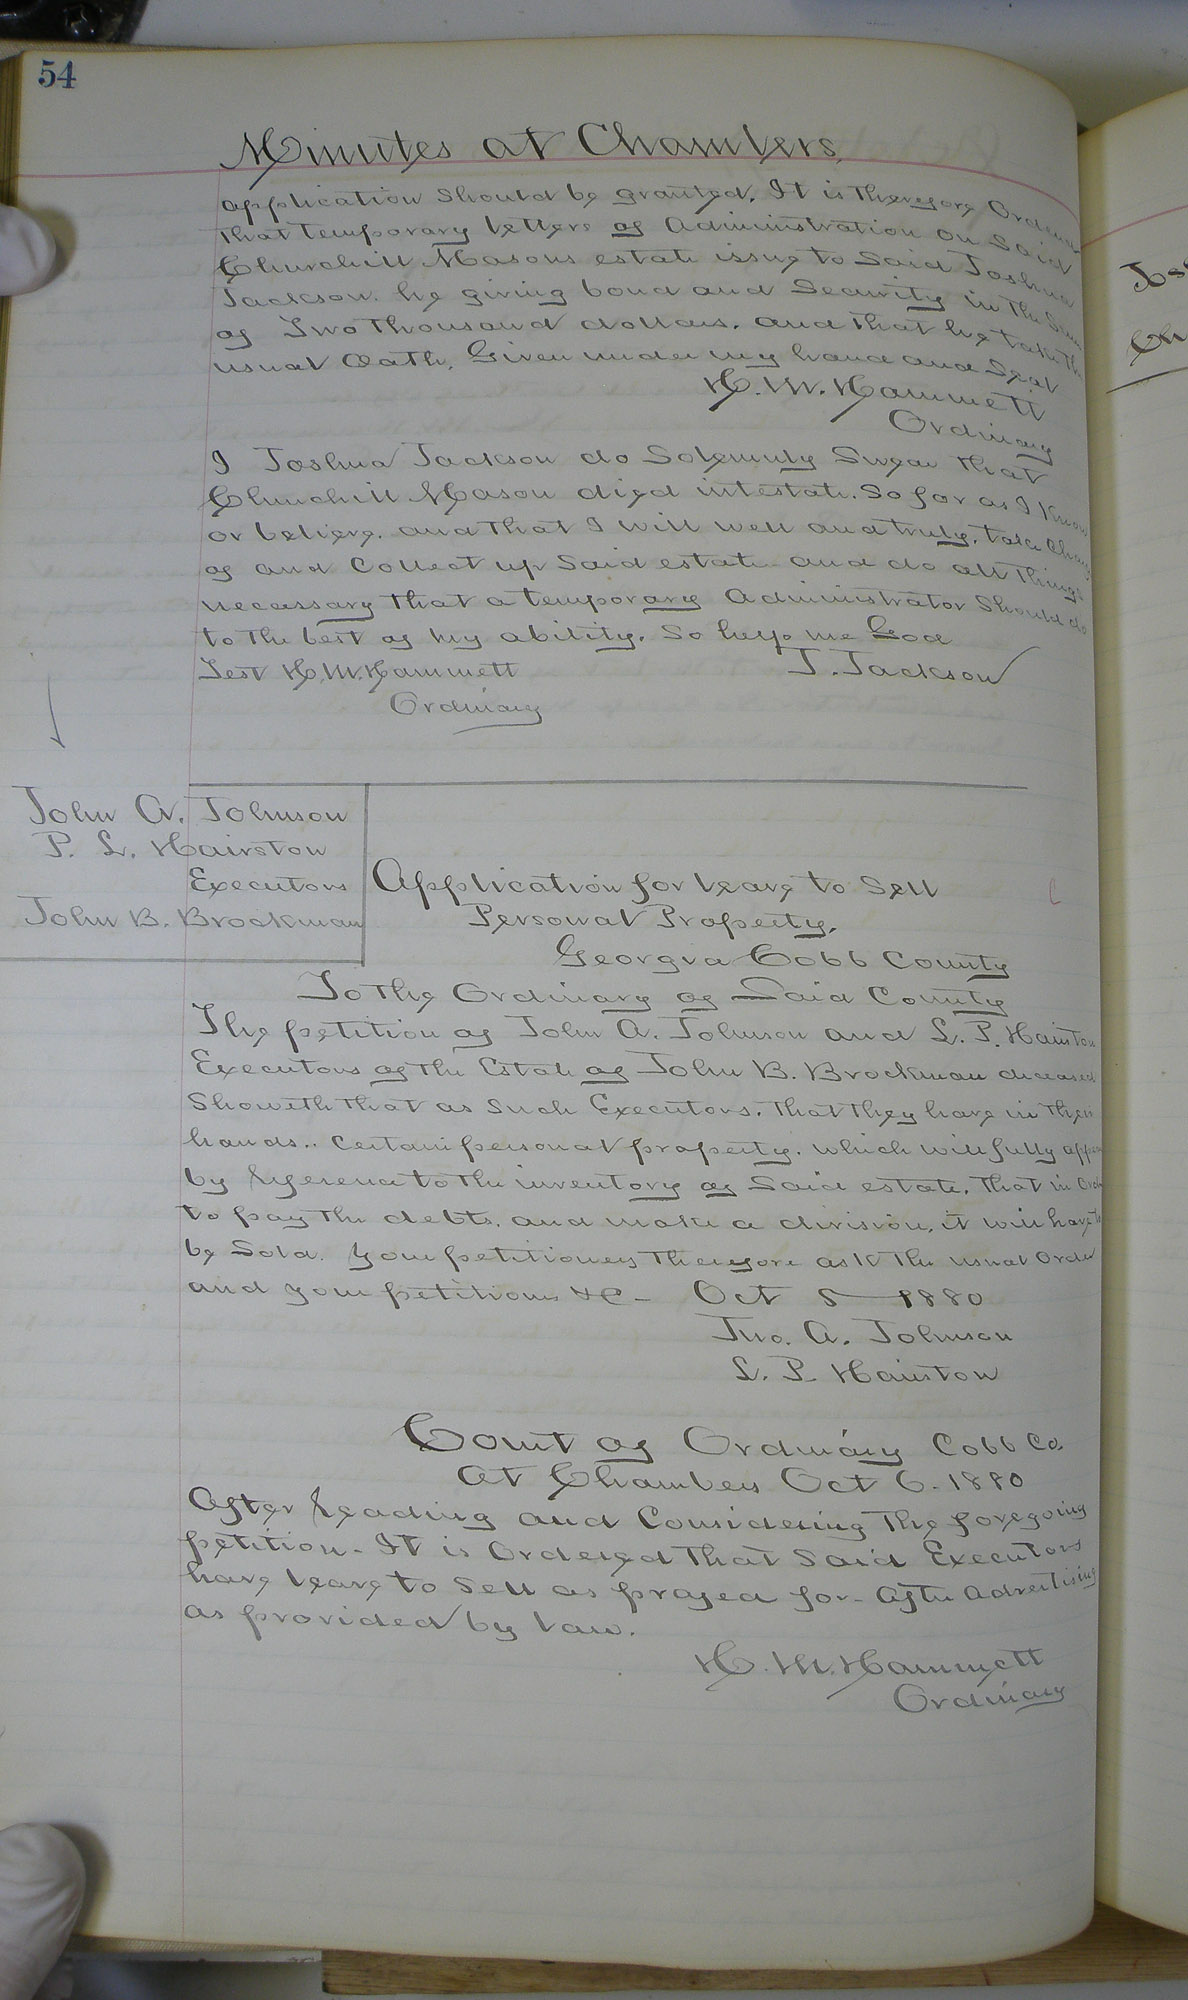 54
Minutes at Chambers.
application should be granted. It is therefore Ordered
that temporary letters of Administration on said
Churchill Masons estate issue to said Joshua
Jackson. he giving bond and Security in the Sum
of Two thousand dollars. and that he take the
usual Oath. Given under my hand and Seal
H. M. Hammett
Ordinary
I Joshua Jackson do Solemnly Swear that
Churchill Mason died intestate. So far as I Know
or believe. and that I will well and truly. take Charge
of and Collect up Said estate and do all things
necessary that a temporary Administrator Should do
to the best of my ability. So help me God
Test H. M. Hammett J. Jackson
Ordinary
John A. Johnson
P. L. Hairston
Executors
John B. Brockman
Application for leave to Sell
Personal Property.
Georgia Cobb County
To the Ordinary of Said County
The petition of John A. Johnson and L. P. Hairston
Executors of the Estate of John B. Brockman deceased
Showeth that as Such Executors. that they have in their
hands.. Certain personal property. which will fully appear
by reference to the inventory of Said estate. that in Order
to pay the debts. and make a division, it will have to
be Sold. Your petitioners therefore ask the usual Order
and your petitions &c - Oct 5 - 1880
Jno. A. Johnson
L. P. Hairston
Court of Ordinary Cobb Co.
At Chambers Oct 6. 1880
After Reading and Considering the foregoing
petition - It is Ordered that Said Executors
have leave to Sell as prayed for - After Advertising
as provided by law.
H. M. Hammett
Ordinary